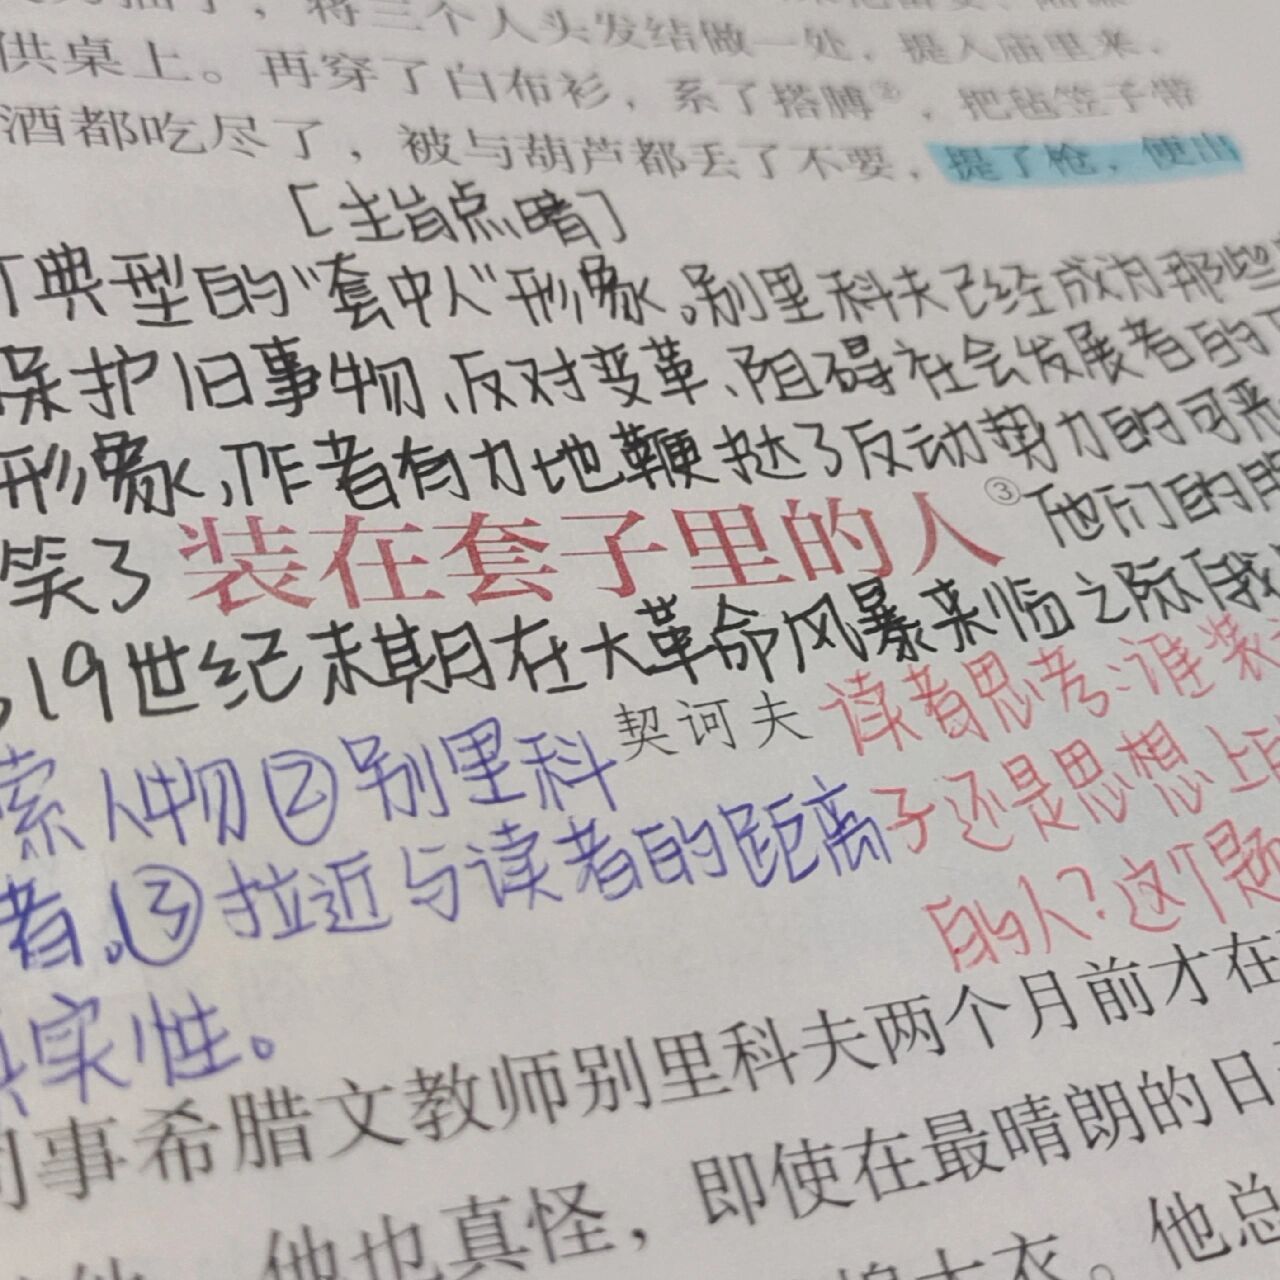 将三个人头发结做一处，提入庙里来，
供桌上。再穿了白布衫，系了搭膊②，把毡笠子带
酒都吃尽了，被与葫芦都丢了不要，提了枪，便出
[主旨点睛]
了典型的“套中人”形象。别里科夫已经成为那些
保护旧事物、反对变革、阻碍社会发展者的
形象，作者有力地鞭挞了反动势力的可
笑了 装在套子里的人③ 他们的
19世纪末期在大革命风暴来临之际俄
契诃夫
读者思考：谁装
子还是思想上
的人？这个题
索人物②别里科
者。③拉近与读者的距离
真实性。
同事希腊文教师别里科夫两个月前才在
他也真怪，即使在最晴朗的日
棉大衣。他总